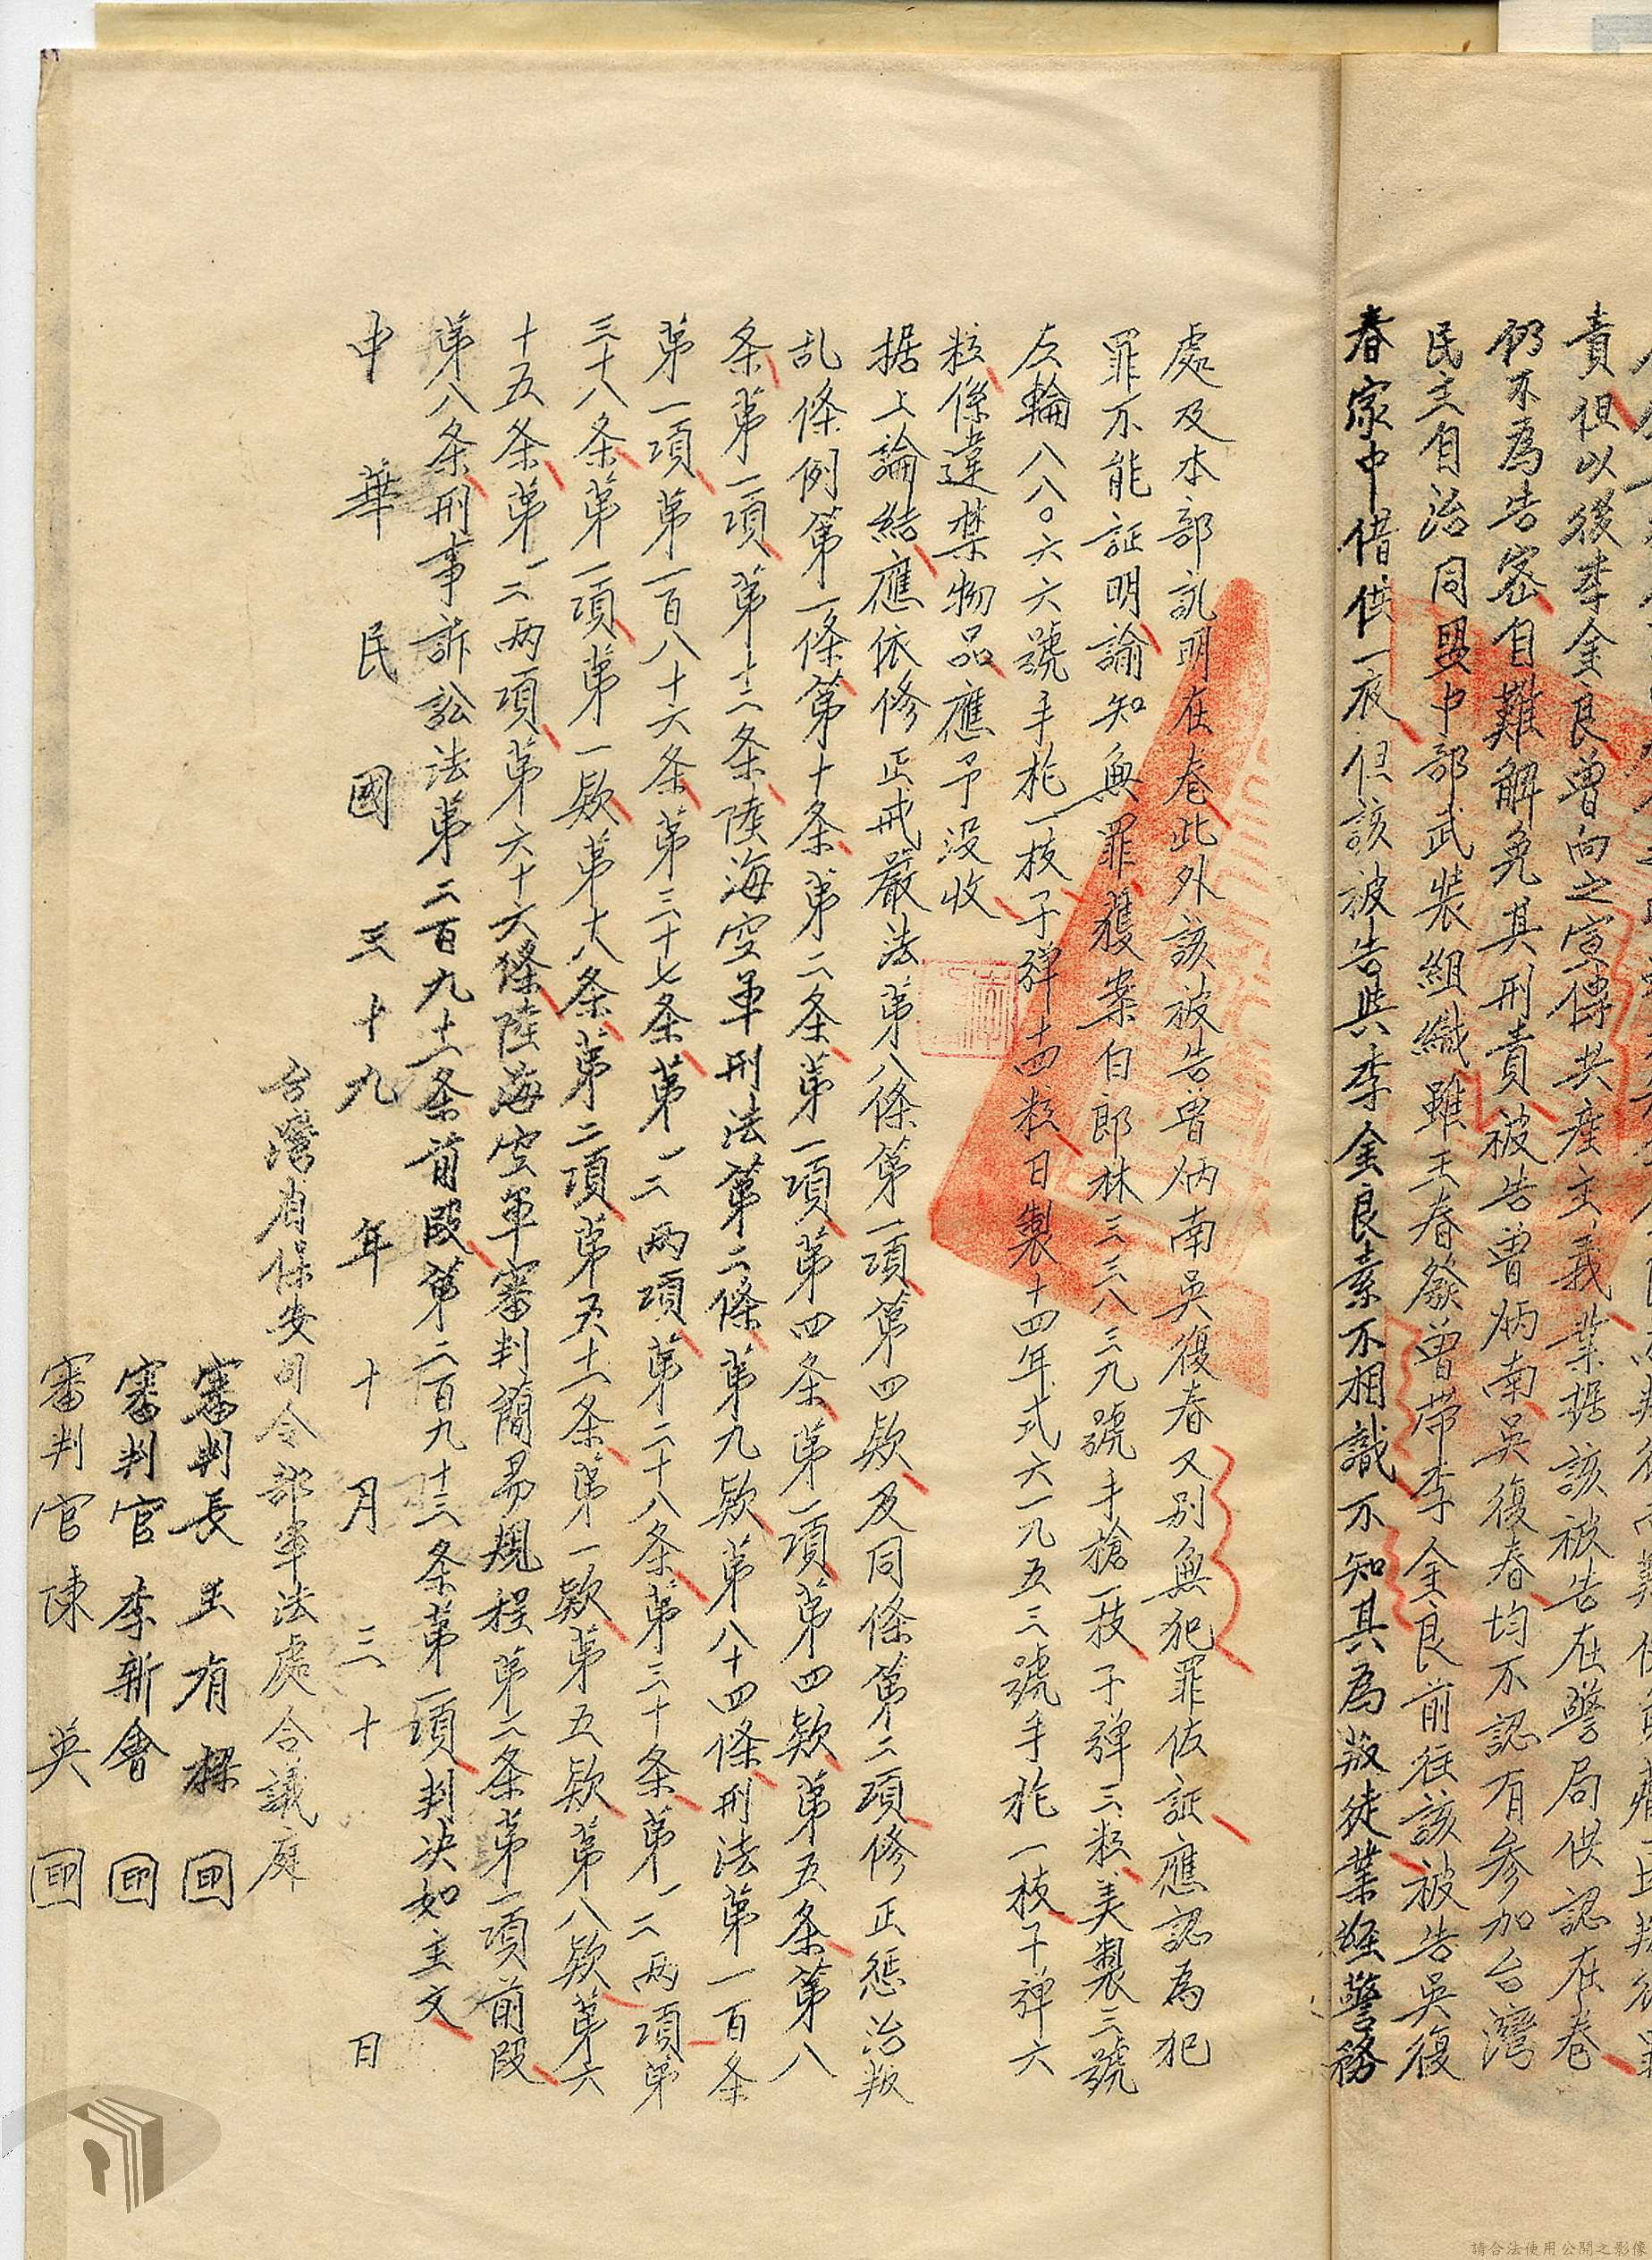 責但以後李金良曾向之宣傳共產主義業据該被告在警局供認在卷
仍不為告密自難解免其刑責被告曾炳南吳復春均不認有參加台灣
民主自治同盟中部武裝組織雖王春發曾帶李金良前往該被告吳復
春家中借供一夜但該被告與李金良素不相識不知其為叛徒業經警務
處及本部訊明在卷此外該被告曾炳南吳復春又別無犯罪佐証應認為犯
罪不能証明諭知無罪獲案白郎林三三八三九號手搶一枝子彈三粒美製三號
左輪八八〇六六號手枪一枝子彈十四粒日製十四年式六一九五三號手枪一枝子彈六
粒係違禁物品應予没收
据上論結應依修正戒嚴法第八條第一項第四款及同條第二項修正惩治叛
乱條例第一條第十条第二条第一項第四条第一項第四款第五条第八
条第一項第十二条陸海空軍刑法第二條第九款第八十四條刑法第一百条
第一項第一百八十六条第三十七条第一二两項第二十八条第三十条第一二两項第
三十八条第一項第一款第十八条第二項第五十一条第一款第五款第八款第六
十五条第一二两項第六十六條陸海空軍審判簡易規程第二条第一項前段
第八条刑事訴訟法第二百九十一条前段第二百九十三条第一項判决如主文
中華民國三十九年十月三十日
台灣省保安司令部軍法處合議庭
審判長王有樑印
審判官李新會印
審判官陳英印
請合法使用公開之影像